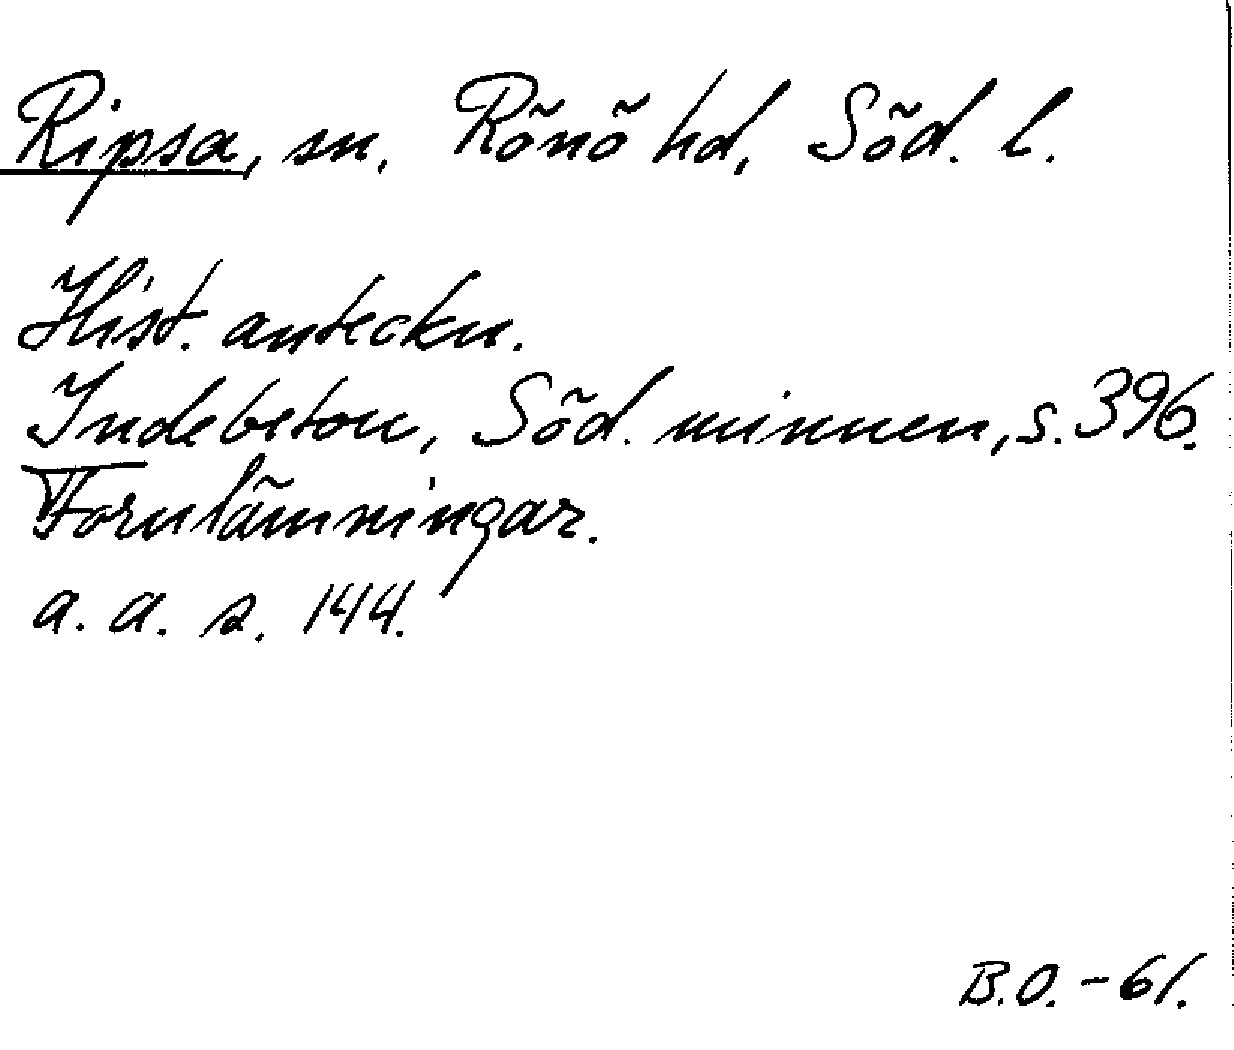 Ripsa, sn. Rönö hd, Söd. l.
Hist. anteckn.
Indebetou, Söd. minnen, s. 396.
Fornlämningar.
a. a. s. 144.
B.O. - 61.